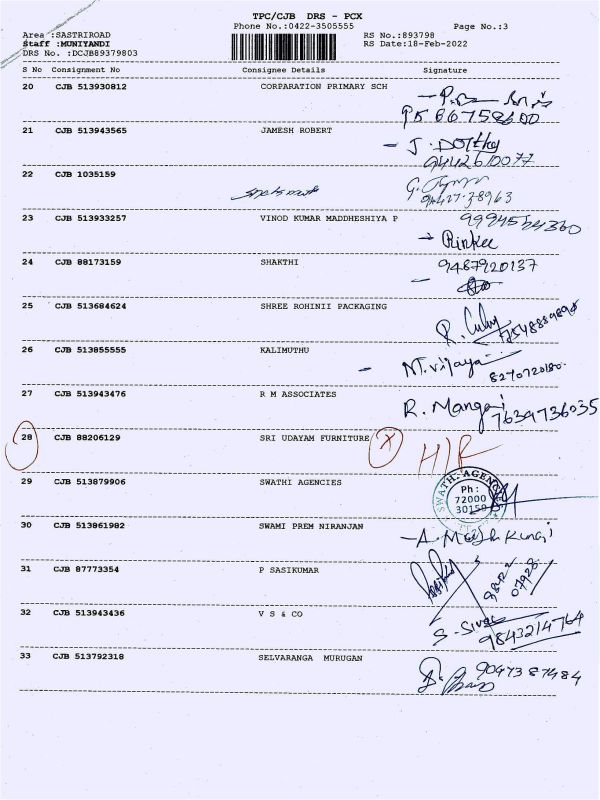 TPC/CJB DRS - PCX
Phone No.:0422-3505555 Page No.:3
Area :SASTRIROAD RS No.:893798
Staff :MUNIYANDI RS Date:18-Feb-2022
DRS No. :DCJB89379803
S No Consignment No Consignee Details Signature
20 CJB 513930812 CORPARATION PRIMARY SCH
21 CJB 513943565 JAMESH ROBERT
9442610077
22 CJB 1035159
23 CJB 513933257 VINOD KUMAR MADDHESHIYA P
Rinkee
24 CJB 88173159 SHAKTHI 9487920137
25 CJB 513684624 SHREE ROHINII PACKAGING
26 CJB 513855555 KALIMUTHU
M.vijaya
8270720180
27 CJB 513943476 R M ASSOCIATES
R. Mangai 7639736035
28 CJB 88206129 SRI UDAYAM FURNITURE X
29 CJB 513879906 SWATHI AGENCIES
Ph :
72000
30 CJB 513861982 SWAMI PREM NIRANJAN
31 CJB 87773354 P SASIKUMAR
32 CJB 513943436 V S & CO
9843214764
33 CJB 513792318 SELVARANGA MURUGAN
9047387484